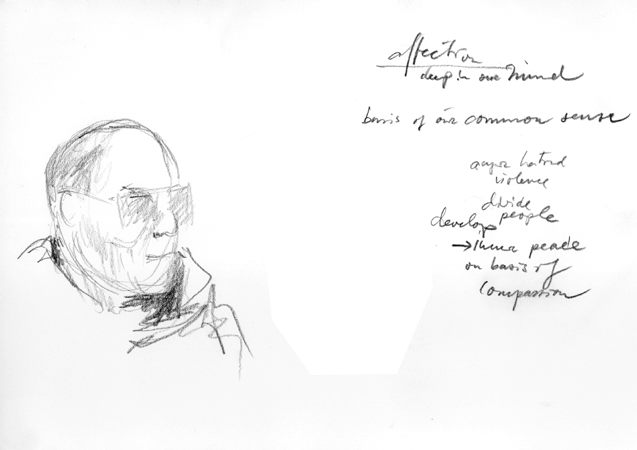 affection
deep in our mind
basis of our common sense
anger hatred
violence
divide
people
develop
→ inner peace
on basis of
compassion